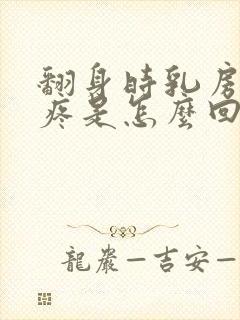 翻身時乳房
疼是怎麼回
龍巖—吉安—